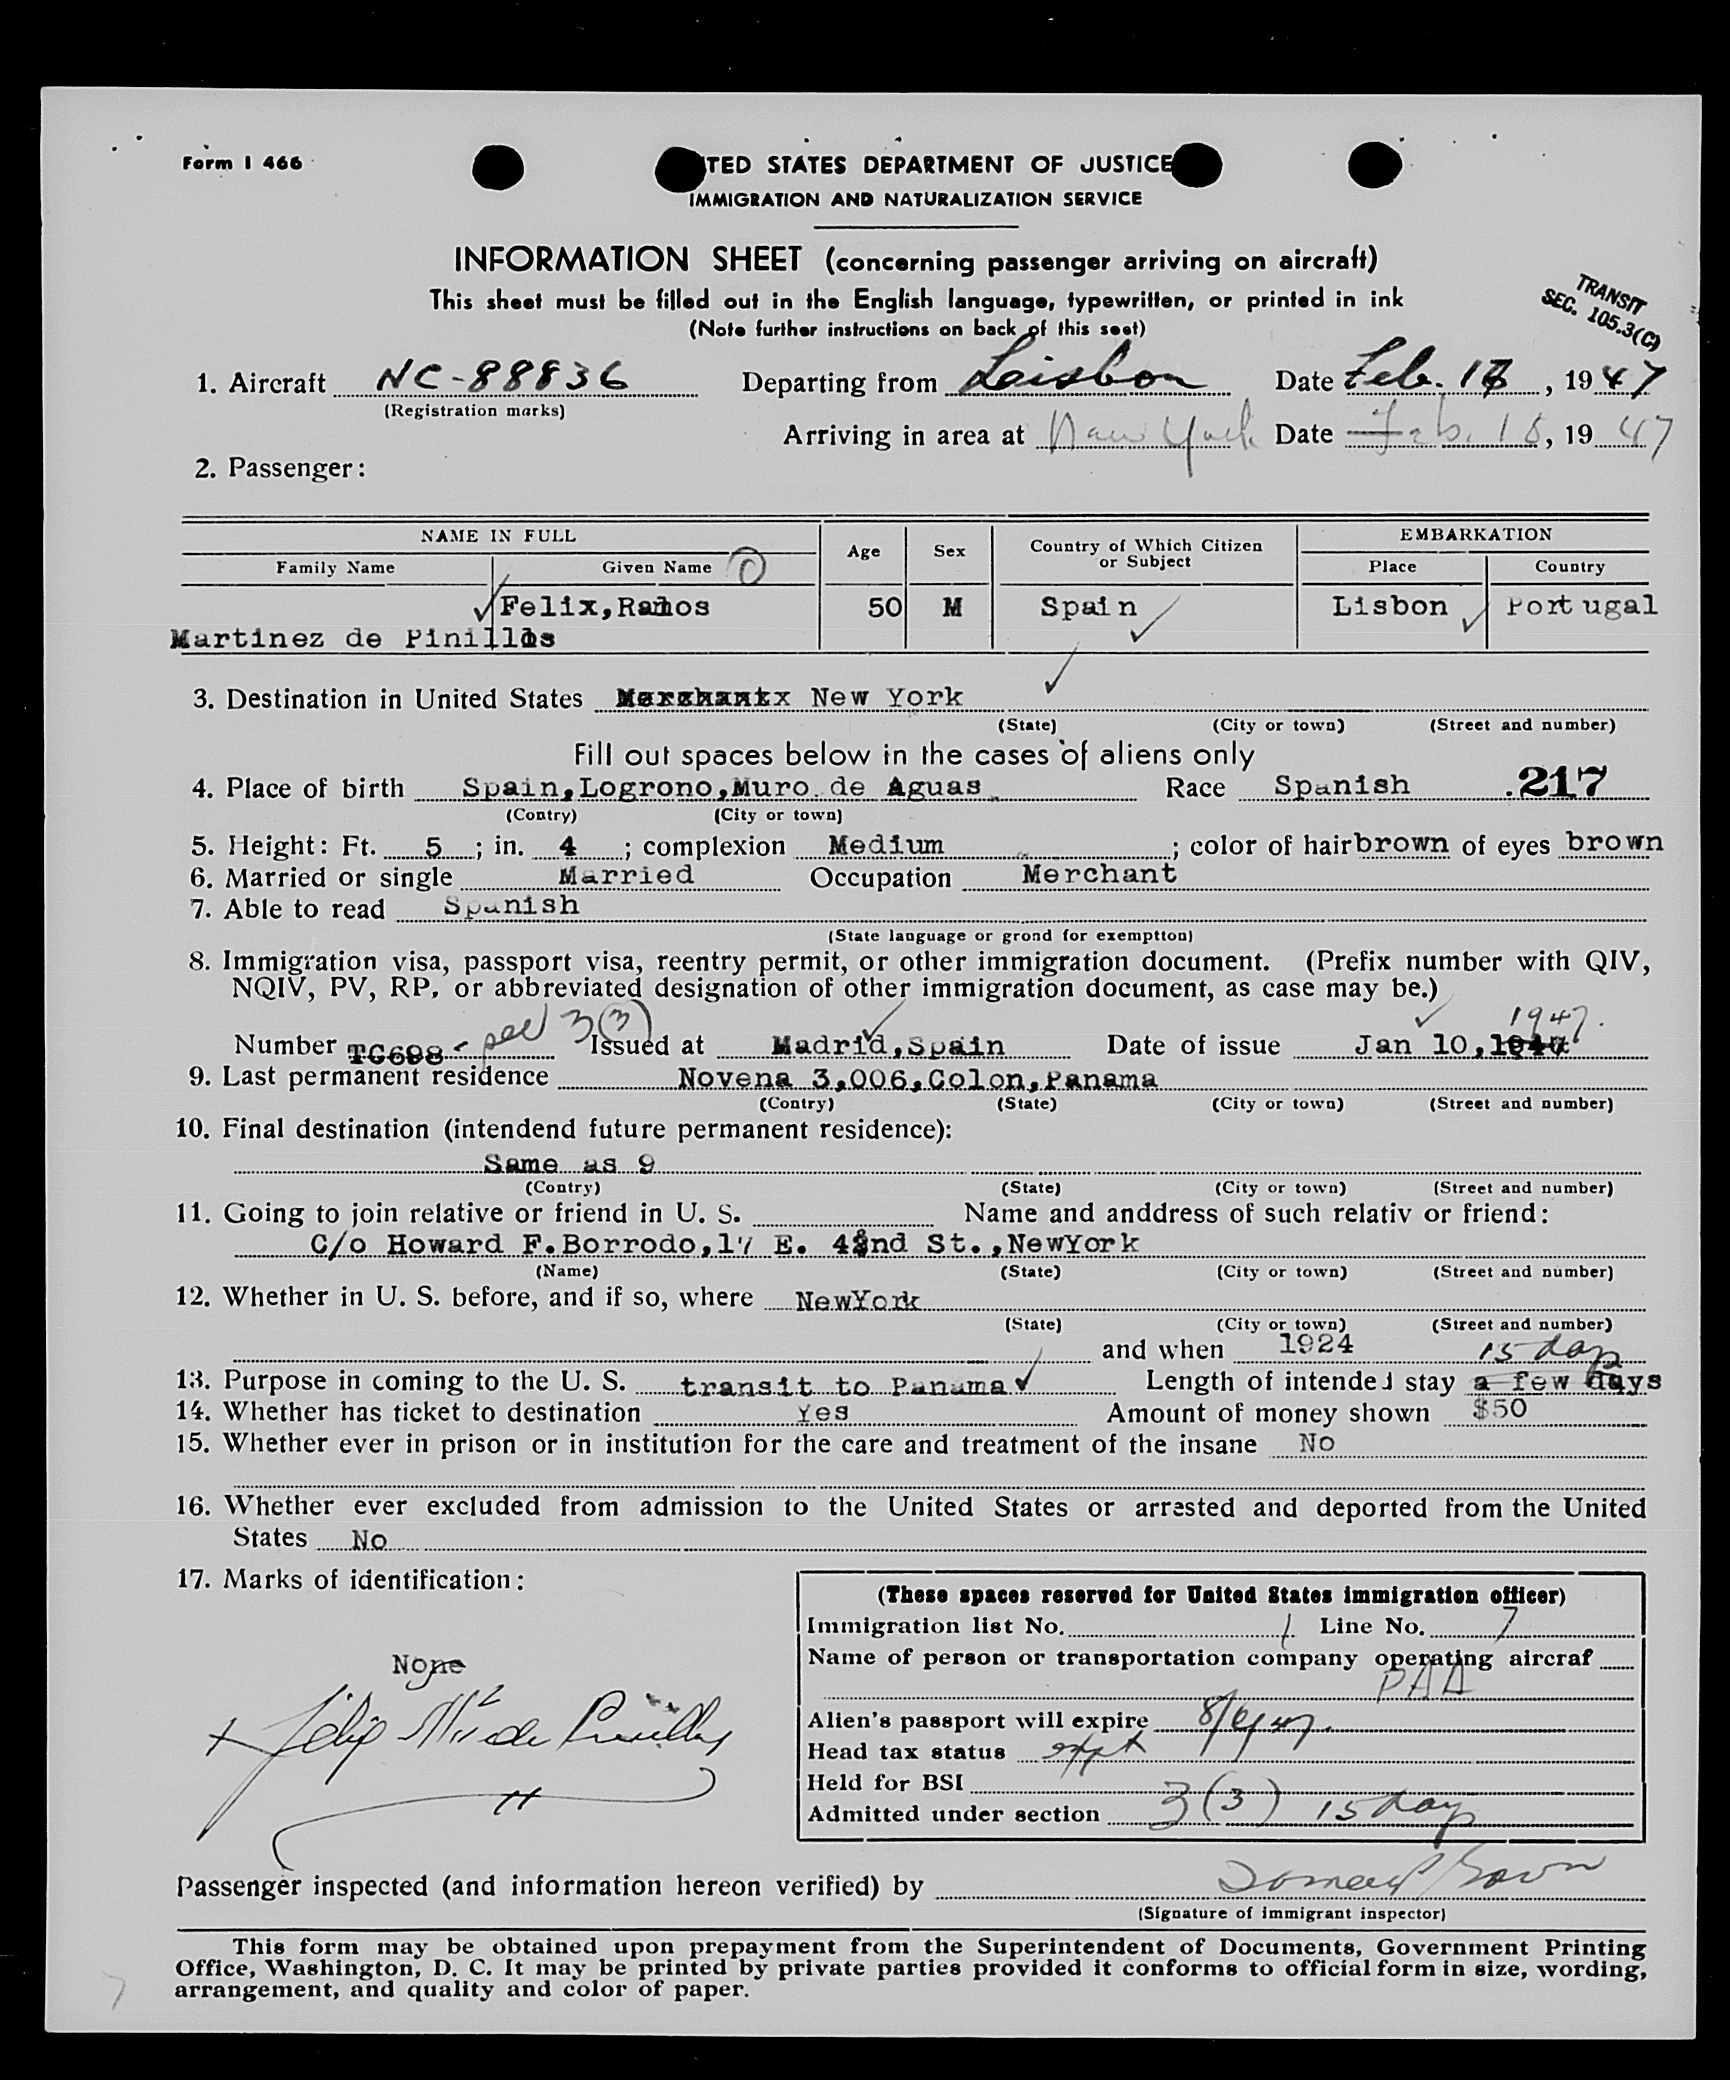 Form I 466
TED STATES DEPARTMENT OF JUSTICE
IMMIGRATION AND NATURALIZATION SERVICE
INFORMATION SHEET (concerning passenger arriving on aircraft)
This sheet must be filled out in the English language, typewritten, or printed in ink
(Note further instructions on back of this seet)
TRANSIT
SEC. 105.3(C)
1. Aircraft NC-88836 Departing from Leisbon Date Feb. 17, 1947
(Registration marks)
Arriving in area at New York Date Feb. 18, 1947
2. Passenger:
NAME IN FULL Age Sex Country of Which Citizen or Subject EMBARKATION
Family Name Given Name Place Country
Felix, Ramos 50 M Spain Lisbon Portugal
Martinez de Pinillos
3. Destination in United States New York
(State) (City or town) (Street and number)
Fill out spaces below in the cases of aliens only
4. Place of birth Spain, Logrono, Muro de Aguas Race Spanish .217
(Contry) (City or town)
5. Height: Ft. 5; in. 4; complexion Medium; color of hair brown of eyes brown
6. Married or single Married Occupation Merchant
7. Able to read Spanish
(State language or grond for exemptton)
8. Immigration visa, passport visa, reentry permit, or other immigration document. (Prefix number with QIV,
NQIV, PV, RP. or abbreviated designation of other immigration document, as case may be.)
1947.
Number TC698 - sec 3(3) Issued at Madrid, Spain Date of issue Jan 10, 1947
9. Last permanent residence Novena 3,006, Colon, Panama
(Contry) (State) (City or town) (Street and number)
10. Final destination (intendend future permanent residence):
Same as 9
(Contry) (State) (City or town) (Street and number)
11. Going to join relative or friend in U. S. Name and anddress of such relativ or friend:
C/o Howard F. Borrodo, 17 E. 42nd St., NewYork
(Name) (State) (City or town) (Street and number)
12. Whether in U. S. before, and if so, where NewYork
(State) (City or town) (Street and number)
and when 1924 15 days
13. Purpose in coming to the U. S. transit to Panama Length of intended stay a few days
14. Whether has ticket to destination Yes Amount of money shown $50
15. Whether ever in prison or in institution for the care and treatment of the insane No
16. Whether ever excluded from admission to the United States or arrested and deported from the United
States No
17. Marks of identification:
None
(These spaces reserved for United States immigration officer)
Immigration list No. 1 Line No. 7
Name of person or transportation company operating aircraf
PAA
Alien's passport will expire 8/6/47.
Head tax status
Held for BSI
Admitted under section 3(3) 15 days
Passenger inspected (and information hereon verified) by
(Signature of immigrant inspector)
This form may be obtained upon prepayment from the Superintendent of Documents, Government Printing
Office, Washington, D. C. It may be printed by private parties provided it conforms to official form in size, wording,
arrangement, and quality and color of paper.
7